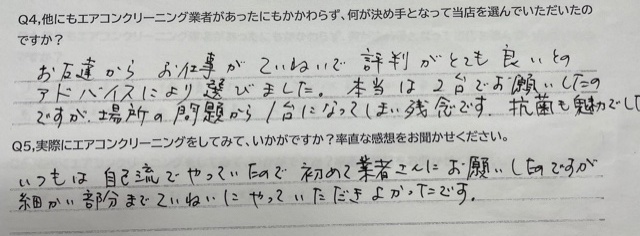 Q4,他にもエアコンクリーニング業者があったにもかかわらず、何が決め手となって当店を選んでいただいたの
ですか?
お友達から お仕事が ていねいで 評判が とても 良いとの
アドバイスにより 選びました。 本当は 2台で お願いしたの
ですが、場所の 問題から 1台になってしまい 残念です。 抗菌も 魅力でし
Q5,実際にエアコンクリーニングをしてみて、いかがですか?率直な感想をお聞かせください。
いつもは 自己流で やっていたので 初めて 業者さんに お願いしたのですが
細かい 部分まで ていねいに やって いただき よかったです。